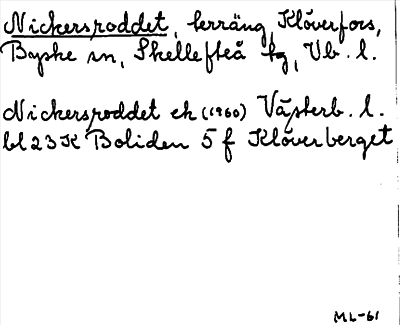 Nickersroddet, terräng, Klöverfors,
Byske sn, Skellefteå kg, Vb. l.
Nickersroddet ek (1960) Västerb. l.
bl 23 K Boliden 5 f Klöverberget
ML-61